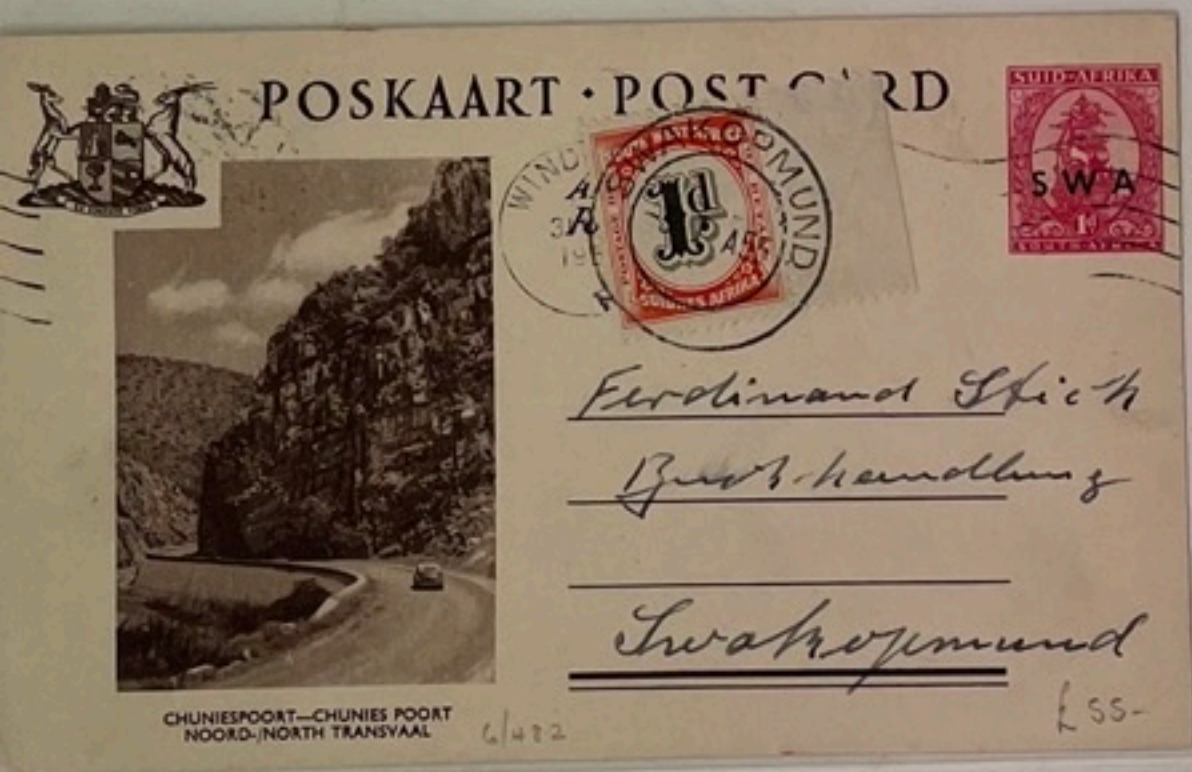 POSKAART · POST CARD
SUID-AFRIKA
SWA
1d
WIND
SWAKOPMUND
1d
SUIDWES AFRIKA
Ferdinand Stich
Buchhandlung
Swakopmund
CHUNIESPOORT—CHUNIES POORT
NOORD-/NORTH TRANSVAAL
6/482
£55-